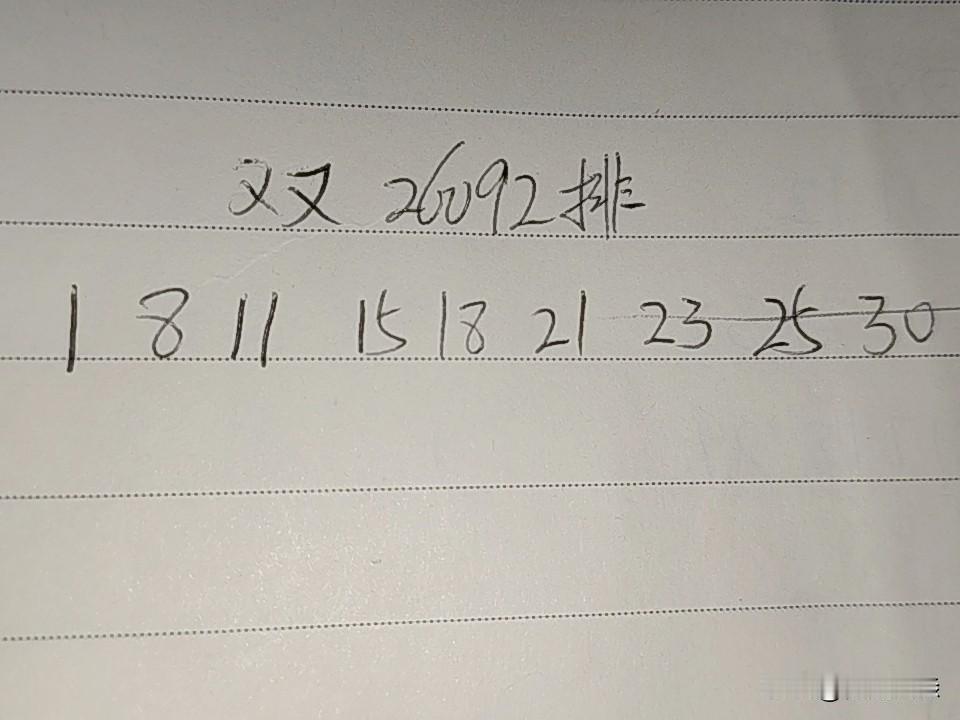 双 26092排
1 8 11 15 18 21 23 25 30